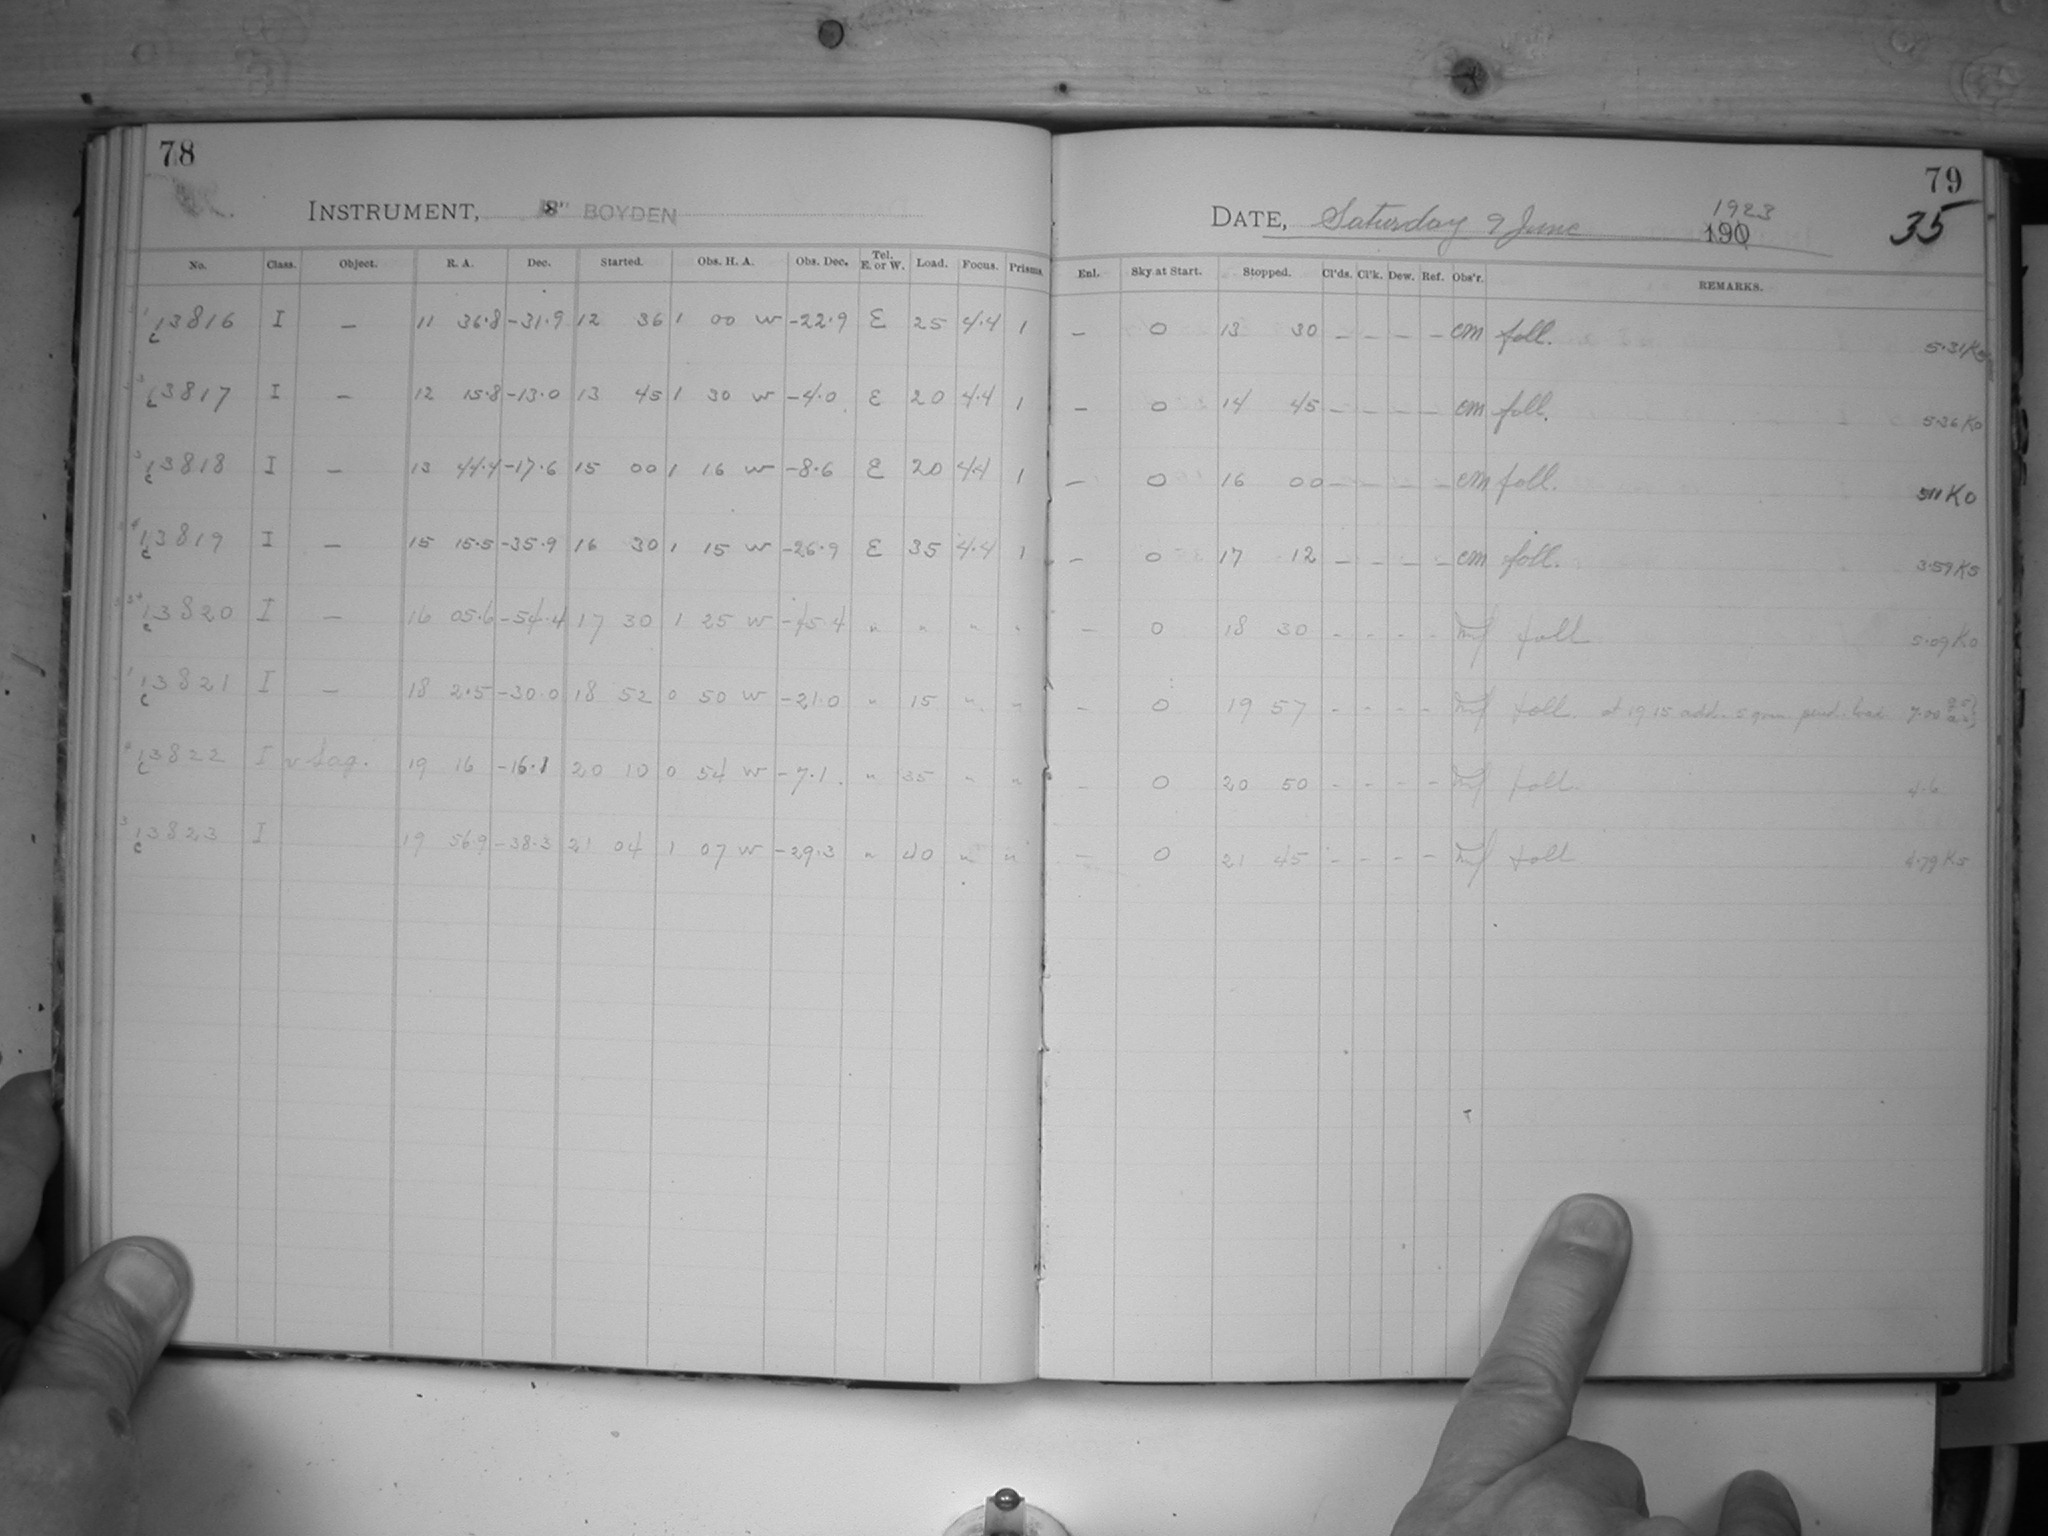 78
INSTRUMENT, 8" BOYDEN
No. Class. Object. R. A. Dec. Started. Obs. H. A. Obs. Dec. Tel. E. or W. Load. Focus. Prisms.
1 c 13816 I — 11 36.8 -31.9 12 36 1 00 W -22.9 E 25 4.4 1
c 13817 I — 12 15.8 -13.0 13 45 1 30 W -4.0 E 20 4.4 1
3 c 13818 I — 13 44.4 -17.6 15 00 1 16 W -8.6 E 20 4.4 1
4 c 13819 I — 15 15.5 -35.9 16 30 1 15 W -26.9 E 35 4.4 1
c 13820 I — 16 05.6 -54.4 17 30 1 25 W -45.4 " " " "
1 c 13821 I — 18 2.5 -30.0 18 52 0 50 W -21.0 " 15 " "
c 13822 I v Sag. 19 16 -16.1 20 10 0 54 W -7.1 " 35 " "
3 c 13823 I 19 56.9 -38.3 21 04 1 07 W -29.3 " 40 " "
79
DATE, Saturday 9 June 1923 190
35
Enl. Sky at Start. Stopped. Cl'ds. Cl'k. Dew. Ref. Obs'r. REMARKS.
— 0 13 30 — — — — cm foll. 5.31 K5
— 0 14 45 — — — — cm foll. 5.36 K0
— 0 16 00 — — — — cm foll. 5.11 K0
— 0 17 12 — — — — cm foll. 3.59 K5
— 0 18 30 - - - - foll 5.09 K0
— 0 19 57 - - - - foll. at 19 15 add. 5 gm pend. load 7.00
— 0 20 50 - - - - foll. 4.6
— 0 21 45 - - - - foll 4.79 K5